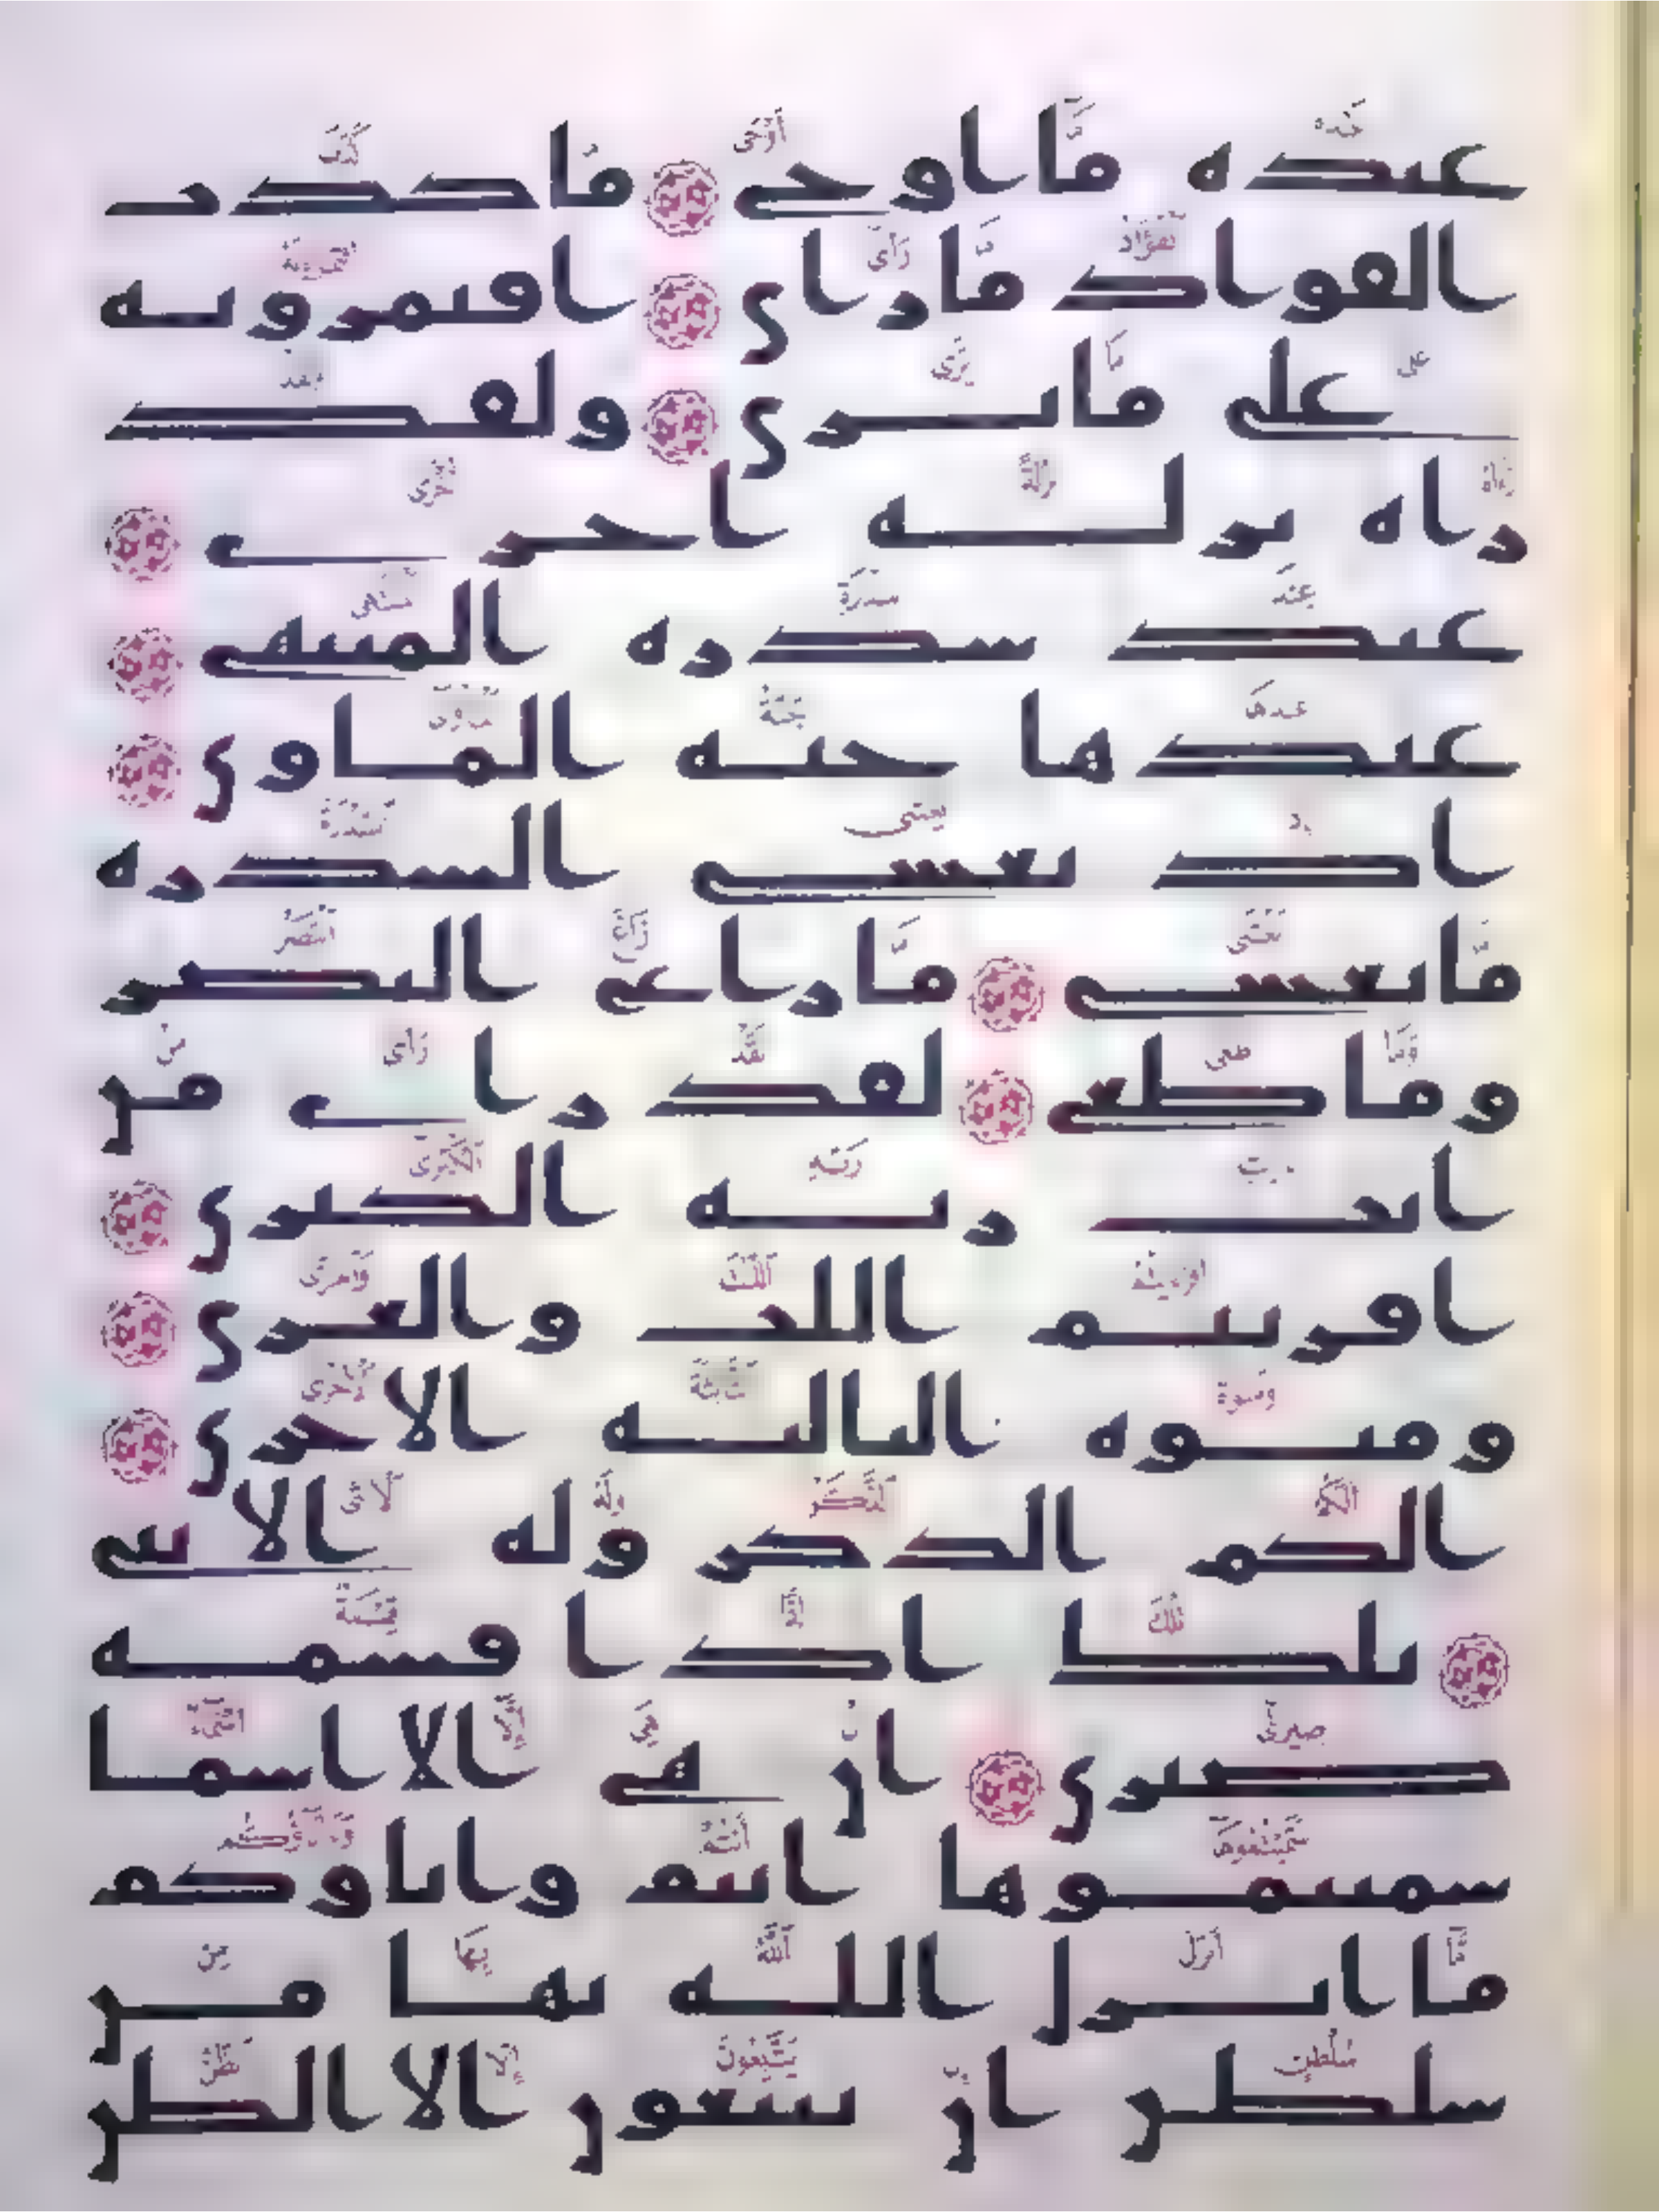 عبده ما اوحى ما كذب
الفواد ما راى افتمرونه
على ما يرى ولقد
راه نزله اخرى
عند سدره المنتهى
عندها جنه الماوى
اذ يغشى السدره
ما يغشى ما زاغ البصر
وما طغى لقد راى من
ايت ربه الكبرى
افريتم اللت والعزى
ومنوه الثالثه الاخرى
الكم الذكر وله الانثى
تلك اذا قسمه
ضيزى ان هي الا اسما
سميتموها انتم واباوكم
ما انزل الله بها من
سلطن ان يتبعون الا الظن